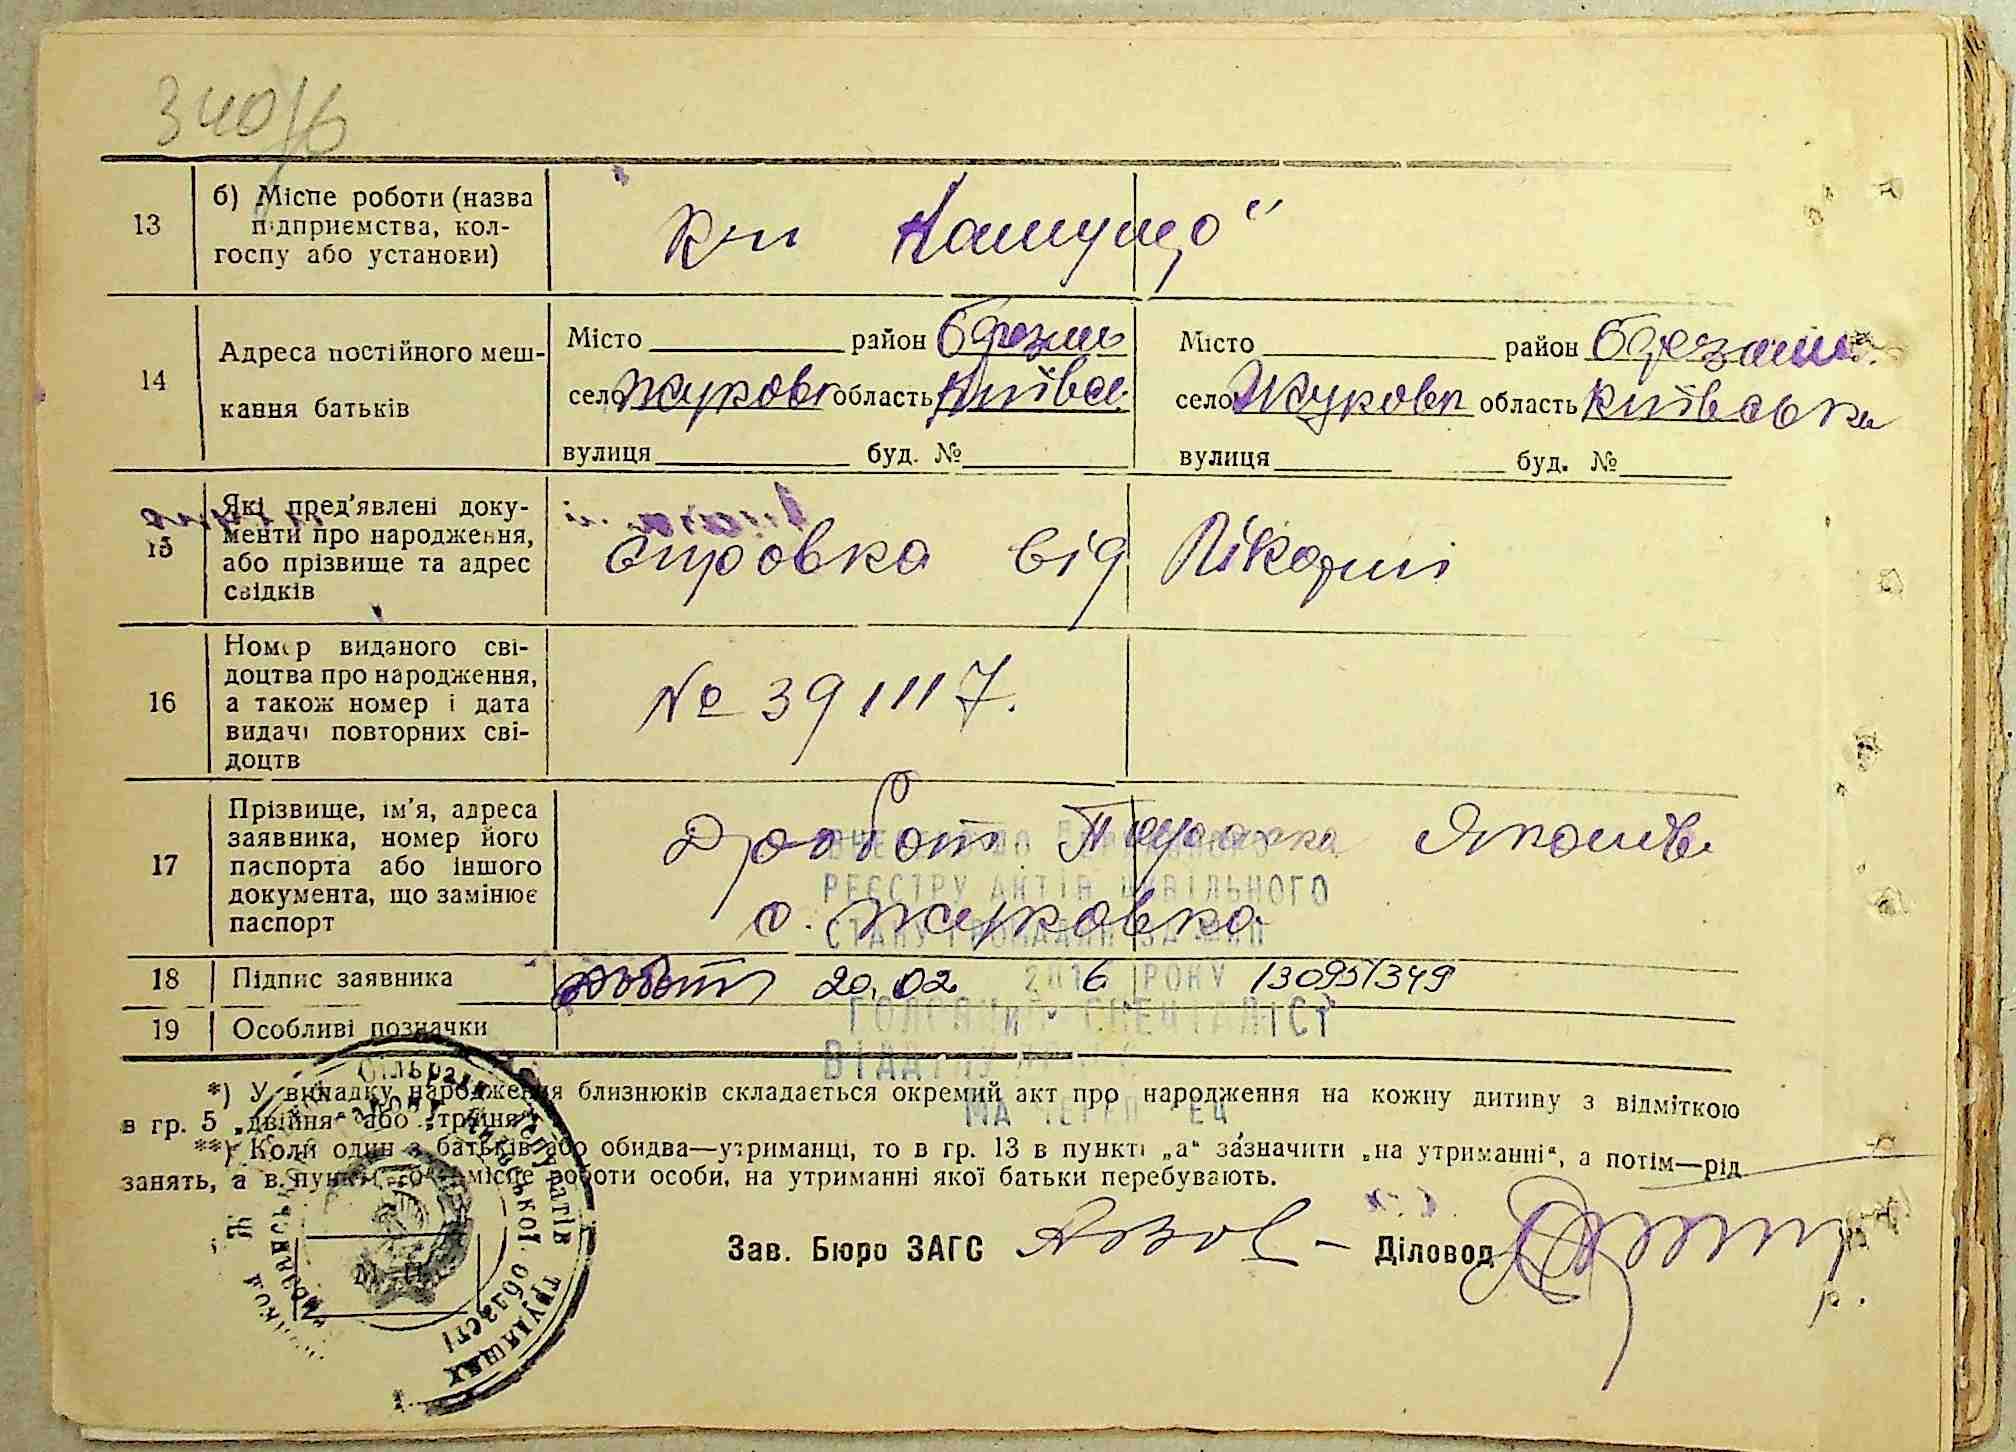 340/6
13 б) Місце роботи (назва
підприємства, кол-
госпу або установи)
14 Адреса постійного меш-
кання батьків
Місто район Березань
село Жуковка область Київсь.
вулиця буд. №
Місто район Березань
село Жуковка область Київська
вулиця буд. №
15 Які пред'явлені доку-
менти про народження,
або прізвище та адрес
свідків
Справка від Лікарні
16 Номер виданого сві-
доцтва про народження,
а також номер і дата
видачі повторних сві-
доцтв
№ 391117.
17 Прізвище, ім'я, адреса
заявника, номер його
паспорта або іншого
документа, що замінює
паспорт
с. Жуковка
РЕЄСТРУ АКТІВ ЦИВІЛЬНОГО
СТАНУ ГРОМАДЯН ЗА №
18 Підпис заявника
20.02 2016 РОКУ 13095/349
19 Особливі позначки
ГОЛОВНИЙ СПЕЦІАЛІСТ
*) У випадку народження близнюків складається окремий акт про народження на кожну дитину з відміткою
в гр. 5 „двійня" або „трійня"
**) Коли один з батьків або обидва—утриманці, то в гр. 13 в пункті „а" зазначити „на утриманні", а потім—рід
занять, а в пункті „б" місце роботи особи, на утриманні якої батьки перебувають.
Зав. Бюро ЗАГС Діловод
М. П.
депутатів трудящих
Київської області